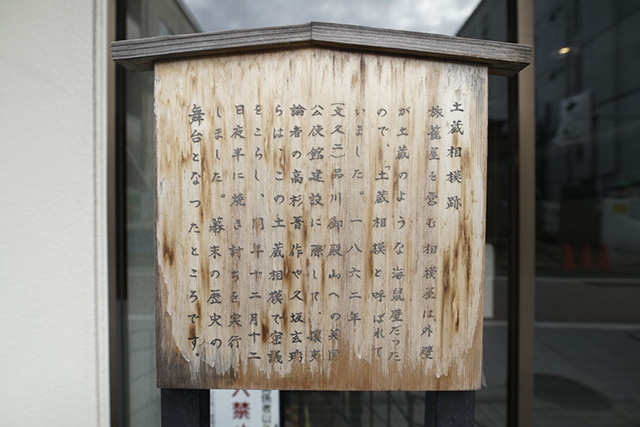 土蔵相模跡
旅籠屋を営む相模屋は外壁
が土蔵のような海鼠壁だった
ので、「土蔵相模」と呼ばれて
いました。一八六二年
(文久二)品川御殿山への英国
公使館建設に際して、攘夷
論者の高杉晋作や久坂玄瑞
らは、この土蔵相模で密議
をこらし、同年十二月十二
日夜半に焼き討ちを実行
しました。幕末の歴史の
舞台となったところです。
禁
係者以